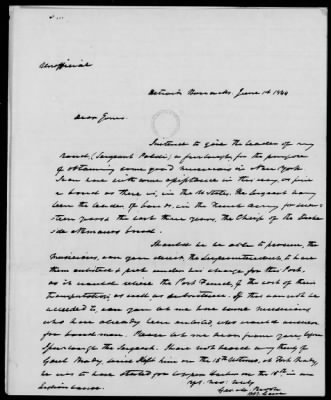 Unofficial
Detroit Barracks, June 14 1844
Dear Jones.
I intend to give the leader of my
band, (Sergeant) a furlough for the purpose of
obtaining some good musicians in New York
I can here with some assistance in this way, as fine
a band as there is, in the U States. The Sergeant has
been the leader of bands, in the French army for
teen years & the last three years, the Chief of the
de band.
Should he be able to procure, the
musicians, can you direct, the Superintendent, to have
them enlisted & put under his charge for this Post.
as it would relieve the Post Fund, of the cost of their
transportation, as well as subsistence. If this can not be
acceded to, can you let me have some musicians
who have already been enlisted who would answer
for bands men. Please let me hear from you, before
I furlough the Sergeant. I have not heard any thing of
Genl. Brady, since I left him on the 15th Ultimo, at Fort
he was to have started for on the 18th in an
Indian canoe.
Yrs. truly